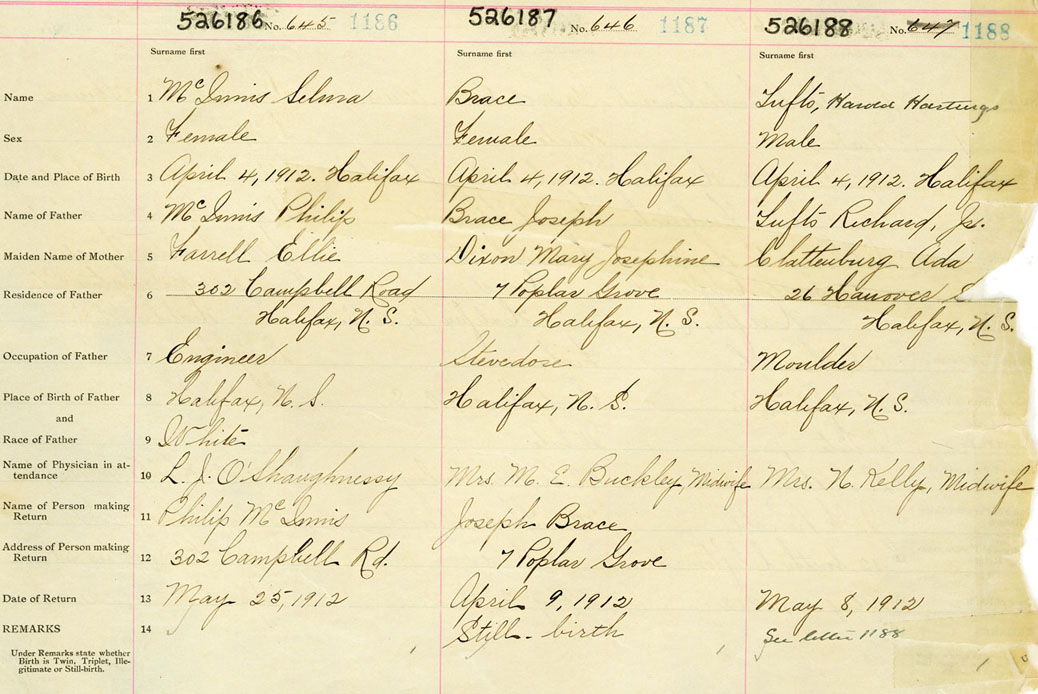 526186 No. 645 1186 526187 No. 646 1187 526188 No. 647 1188
Surname first Surname first Surname first
Name 1 McInnis Selma Brace Tufts, Harold Hastings
Sex 2 Female Female Male
Date and Place of Birth 3 April 4, 1912. Halifax April 4, 1912. Halifax April 4, 1912. Halifax
Name of Father 4 McInnis Philip Brace Joseph Tufts Richard, Jr.
Maiden Name of Mother 5 Farrell Ellie Dixon Mary Josephine Clattenburg Ada
Residence of Father 6 302 Campbell Road 7 Poplar Grove 26 Hanover
Halifax, N. S. Halifax, N. S. Halifax, N. S.
Occupation of Father 7 Engineer Stevedore Moulder
Place of Birth of Father 8 Halifax, N. S. Halifax, N. S. Halifax, N. S.
and
Race of Father 9 White
Name of Physician in at-
tendance 10 L. J. O'Shaughnessy Mrs. M. E. Buckley, Midwife Mrs. N. Kelly, Midwife
Name of Person making
Return 11 Philip McInnis Joseph Brace
Address of Person making
Return 12 302 Campbell Rd. 7 Poplar Grove
Date of Return 13 May 25, 1912 April 9, 1912 May 8, 1912
REMARKS 14 Still-birth See letter 1188
Under Remarks state whether
Birth is Twin, Triplet, Ille-
gitimate or Still-birth.